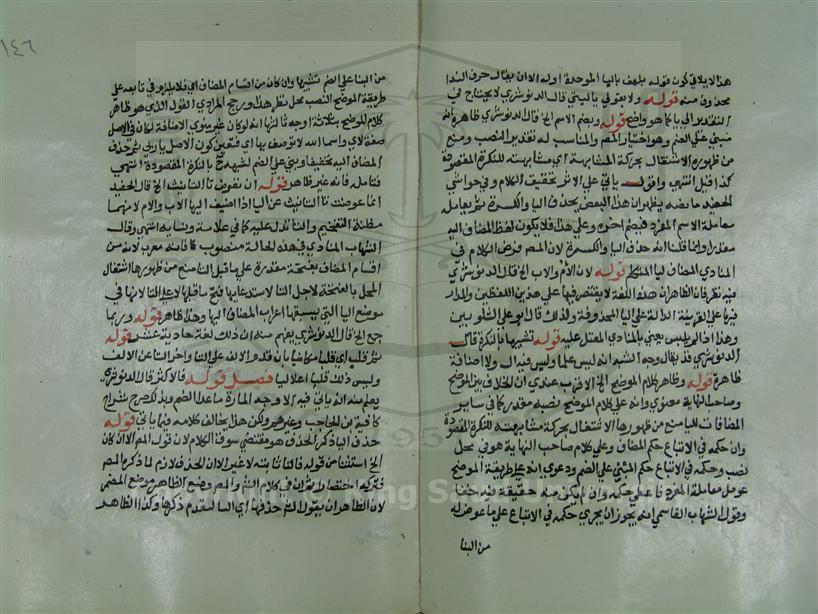 هذا لا يلاقي كون قوله بلهف بالباء الموحدة اوله الا ان يقال حرف الندا
محذوف منه قوله ولا يقولي ياليتني قال الدنوشري لا يحتاج في
التقدير الي يا كما هو واضح قوله وبضم الاسم الخ قال الدنوشري ظاهره انه
مبني علي الضم وهو اختيار المصر والمناسب له تقدير النصب ومنع
من ظهوره الاشتغال بحركة المشابهة اي مشابهته للنكرة المقصودة
كذا قيل انتهي واقول ياتي علي الاثر تحقيق الكلام وفي حواشي
الحفيد ما نصه يظهر ان هذا البعض يحذف اليا والكسرة ثم يعامل
معاملة الاسم المفرد فيضم اخره وعلي هذا فلا يكون لفظ المضاف اليه
مقدرا وانما قلنا انه حذف اليا والكسرة لان المصر فرض الكلام في
المنادي المضاف لياء المتكلم قوله لان الام والاب الخ قال الدنوشري
فيه نظر فان الظاهر ان هذه اللغة لا يقتصر فيها علي هذين اللفظين والمدار
فيها علي القرينة الدالة علي اليا المحذوفة ولذلك قال ابو علي الشلوبين
وهذا اذا لم يلبس يعني بالمنادي المقبل عليه قوله تشبيها بالنكرة قال
الدنوشري قد يقال وجه الشبه انه ليس علما وليس فيه ال ولا اضافة
ظاهرة قوله وظاهر كلام الموضح الخ الاقرب عندي ان الخلاف بين الموضح
وصاحب النهاية معنوي وانه علي كلام الموضح نصبه مقدر كما في ساير
المضافات لليا منع من ظهورها الاشتغال بحركة مشابهته للنكرة المقصودة
وان حكمه في الاتباع حكم المضاف وعلي كلام صاحب النهاية هو في محل
نصب وحكمه في الاتباع حكم المبني علي الضم ودعوي انه علي طريقة الموضح
عومل معاملة المفرد فاعطي حكمه وان لم يكن منه حقيقة فيه خفا
وقول الشهاب القاسمي انه يجوز ان يجري حكمه في الاتباع علي ما عرض له
من البنا
١٤٦
من البنا علي الضم تشبيها وان كان من اقسام المضاف اي فلا يلزم في تابعه علي
طريقة الموضح النصب محل نظر هذا ورجح المرادي القول الذي هو ظاهر
كلام الموضح بثلاثة اوجه ثالثها انه لو كان غير منوي الاضافة لكان في الاصل
صفة لاي واسما الله لا توصف بها اي فتعين كون الاصل يا ربي ثم حذف
المضاف اليه تخفيفا وبني علي الضم لشبهه بالنكرة المقصودة انتهي
فتامله فانه غير ظاهر قوله ان تعوض تا التانيث الخ قال الحفيد
انما عوضت تا التانيث عن اليا اذا اضيف اليها الاب والام لانهما
مظنة التفخيم والتا تدل عليه كما في علامة ونسابة انتهي وقال
الشهاب المنادي في هذه الحالة منصوب فانه معرب لانه من
اقسام المضاف بفتحة مقدرة علي ما قبل التا منع من ظهورها اشتغال
المحل بالفتحة لاجل التا لاستدعايها فتح ما قبلها لا علي التا لانها في
موضع اليا التي يسبقها اعراب المضاف اليها وهذا ظاهر قوله وربما
جمع الخ قال الدنوشري يفهم منه ان ذلك لغة حادية عشر قوله
قلب اي قلبا مكانيا بان قدم الالف علي التا واخر التا عن الالف
وليس ذلك قلبا اعلاليا فصل قوله فالاكثر قال الدنوشري
يعلم منه انه ياتي فيه الاوجه المارة ما عدا الضم وبذلك صرح شراح
كافية بن الحاجب وغيرهم ولكن هذا يخالف كلامه فيما ياتي قوله
حذف اليا ذكر الحذف هو مقتضي سوق الكلام لان قول المصر الا ان كان
الخ استثنا من قوله فاليا ثابتة لا غير الا ان الحذف لازم لما ذكره المصر
فتركه اختصارا وفي كلام الشر والمصر وضع الظاهر موضع المضمر
لان الظاهر ان يقول الشر حذفها اي اليا لتقدم ذكرها وكذا الظاهر